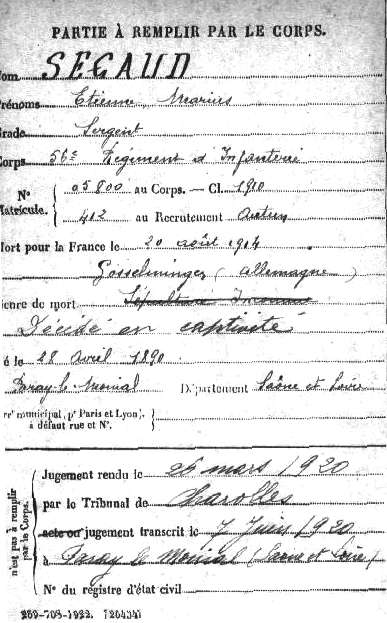 PARTIE À REMPLIR PAR LE CORPS.
Nom SEGAUD
Prénoms Etienne Marius
Grade Sergent
Corps 56e Régiment d'Infanterie
N° Matricule. 05800 au Corps. — Cl. 1910
412 au Recrutement Autun
Mort pour la France le 20 août 1914
à Gosselminger (Allemagne)
Genre de mort Sépulture Inconnue
Décédé en captivité
Né le 28 avril 1890
à Paray-le-Monial Département Saône et Loire
Arrt municipal, (pr Paris et Lyon),
à défaut rue et N°.
n'est pas à remplir par le Corps.
Jugement rendu le 26 mars 1920
par le Tribunal de Charolles
acte ou jugement transcrit le 7 Juin 1920
à Paray le Monial (Saone et Loire)
N° du registre d'état civil
269-708-1922. [26434]